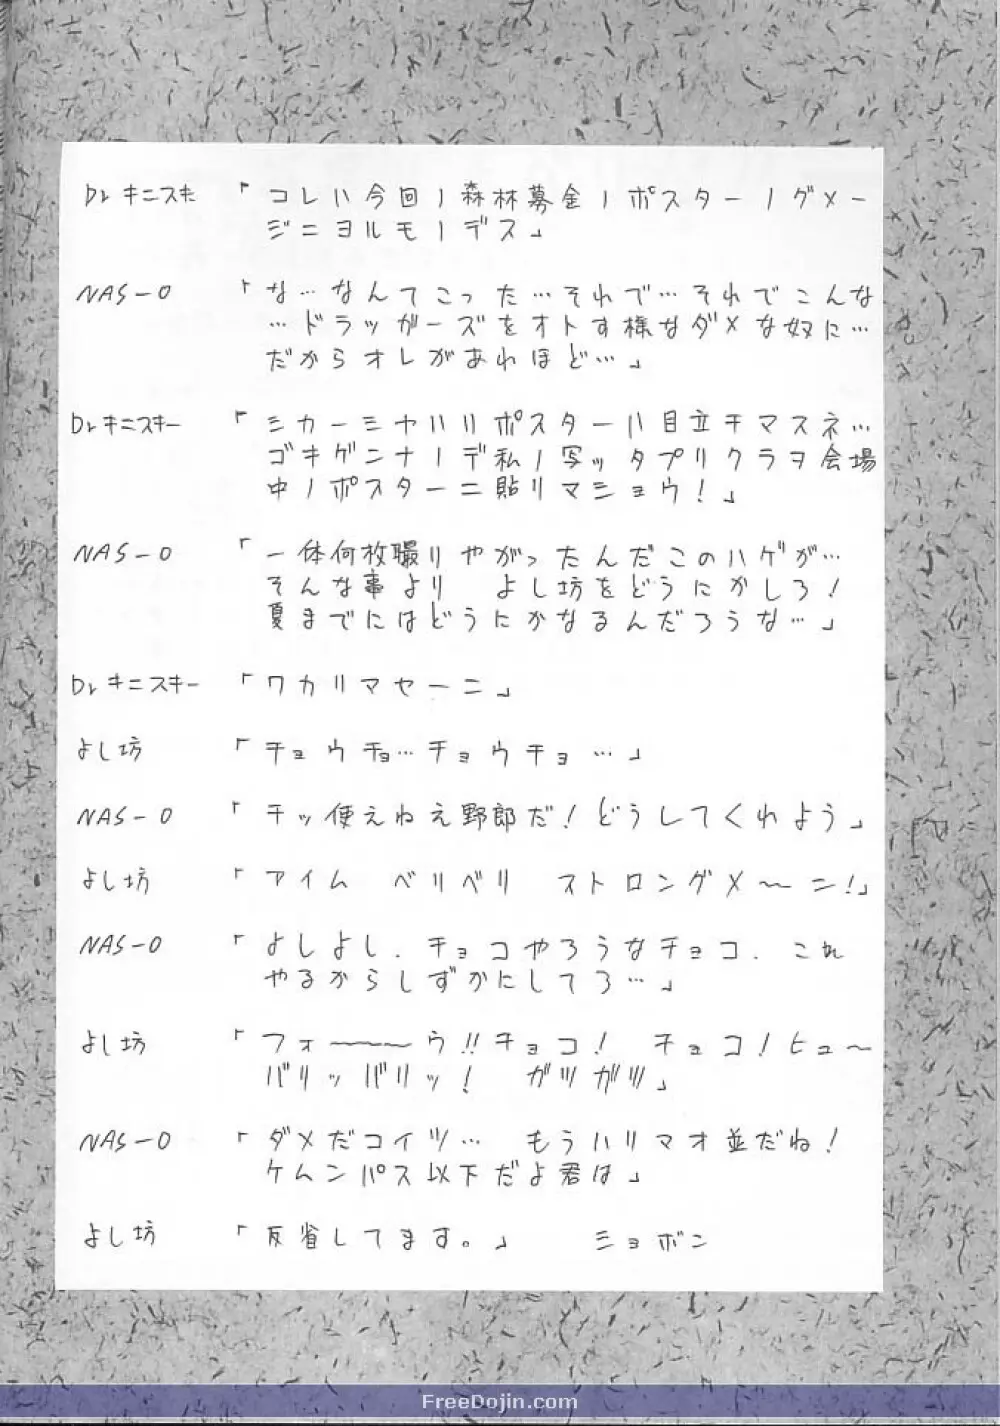 Dr キニスキー 「コレハ今回ノ森林募金ノポスターノダメー
ジニヨルモノデス」
NAS-O 「な…なんてこった…それで…それでこんな
…ドラッガーズをオトす様なダメな奴に…
だからオレがあれほど…」
Dr キニスキー 「シカーミヤハリポスターハ目立チマスネ…
ゴキゲンナノデ私ノ写ッタプリクラヲ会場
中ノポスターニ貼リマショウ!」
NAS-O 「一体何枚撮りやがったんだこのハゲが…
そんな事より よし坊をどうにかしろ!
夏までにはどうにかなるんだろうな…」
Dr キニスキー 「ワカリマセーニ」
よし坊 「チョウチョ…チョウチョ…」
NAS-O 「チッ使えねえ野郎だ!どうしてくれよう」
よし坊 「アイム ベリベリ ストロングメ〜ン!」
NAS-O 「よしよし.チョコやろうなチョコ. これ
やるからしずかにしてろ…」
よし坊 「フォ〜〜〜〜ウ!!チョコ! チョコ!ヒュ〜
バリッバリッ! ガツガツ」
NAS-O 「ダメだコイツ… もうハリマオ並だね!
ケムンパス以下だよ君は」
よし坊 「反省してます。」 ショボン
FreeDojin.com